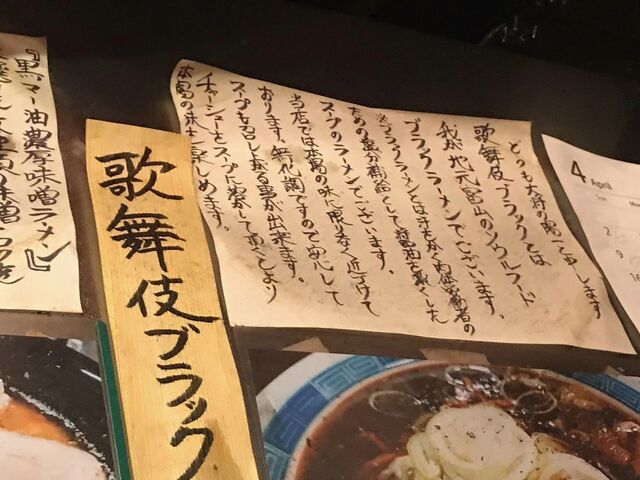 どうも大将の陽一と申します
歌舞伎ブラックとは
我が地元富山のソウルフード
ブラックラーメンでございます。
※ブラックラーメンとは
肉体労働者の
ための塩分補給として
醤油を
スープのラーメンでございます。
当店では本場の味に限りなく近づけて
おります。無化調ですので安心して
スープも召し上がる事が出来ます。
チャーシューをスープに
本場の味を楽しめます。
歌舞伎ブラック
『黒マー油濃厚味噌ラーメン』
4 April
2
9
16